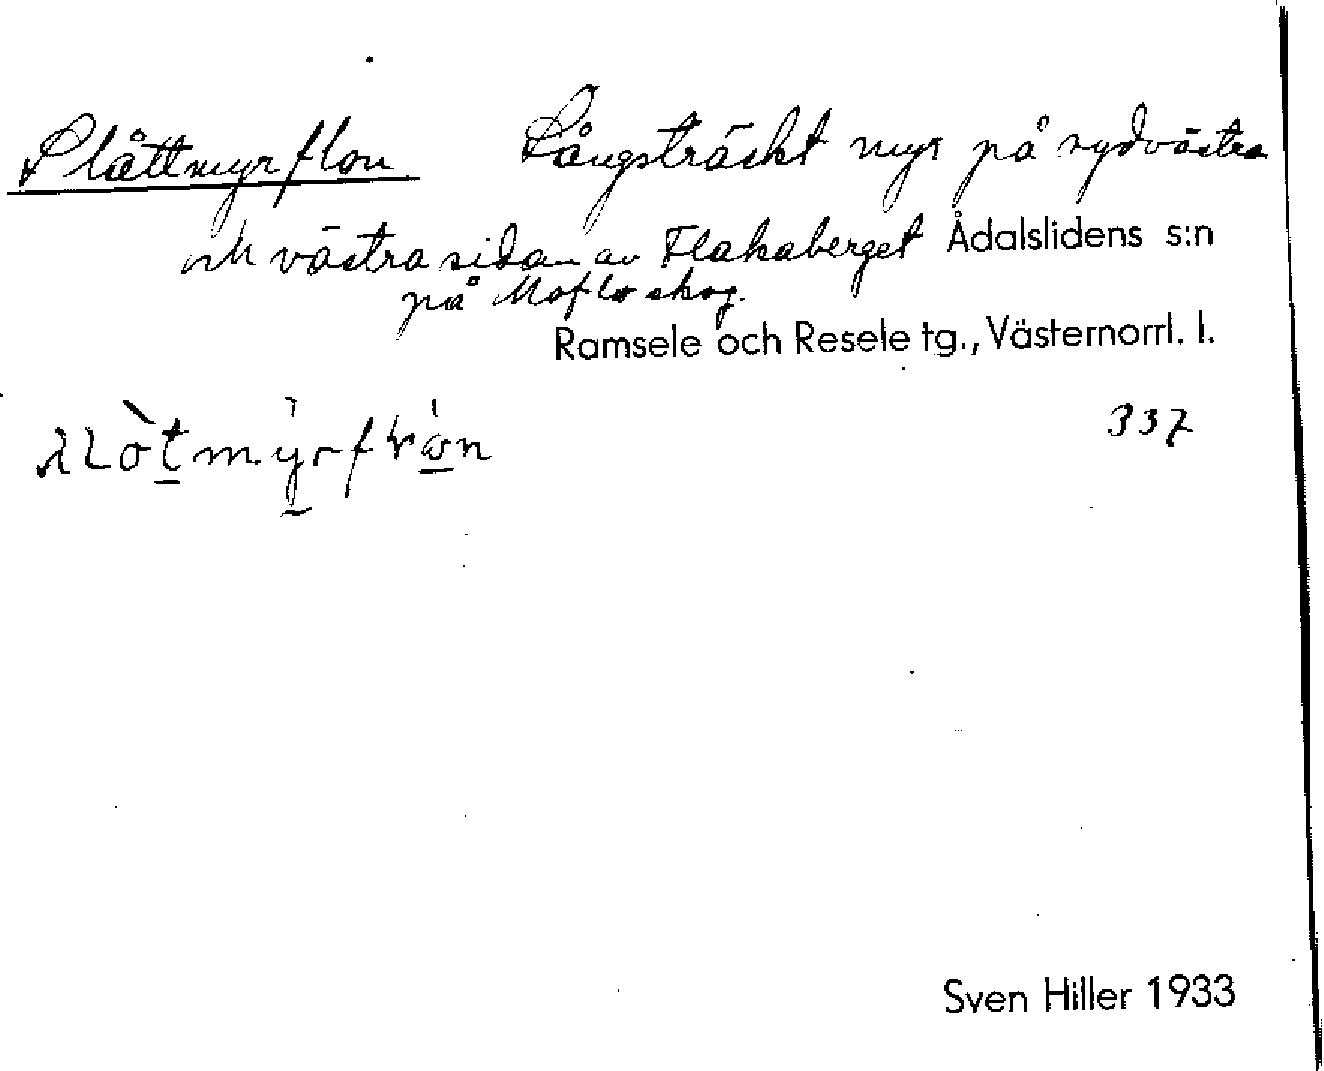 Slåttmyrflon Långsträckt myr på sydvästra
och västra sidan av Flakaberget Ådalslidens s:n
på Moflo skog.
Ramsele och Resele tg., Västernorrl. l.
337
Sven Hiller 1933